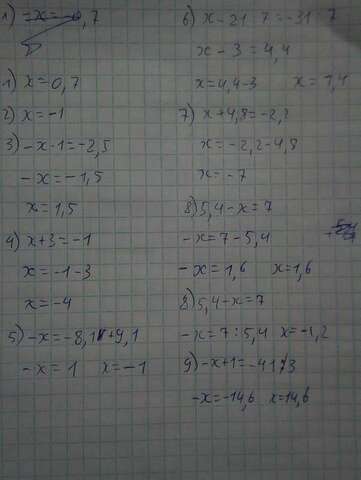 1) x = 0,7
2) x = -1
3) -x - 1 = -2,5
-x = -1,5
x = 1,5
4) x + 3 = -1
x = -1 - 3
x = -4
5) -x = -8,1 + 9,1
-x = 1 x = -1
6) x - 21 : 7 = -31 : 7
x - 3 = 4,4
x = 4,4 - 3 x = 1,4
7) x + 4,8 = -2,2
x = -2,2 - 4,8
x = -7
8) 5,4 - x = 7
-x = 7 - 5,4
-x = 1,6 x = 1,6
8) 5,4 - x = 7
-x = 7 : 5,4 x = -1,2
9) -x + 1 = -41 : 3
-x = -14,6 x = 14,6